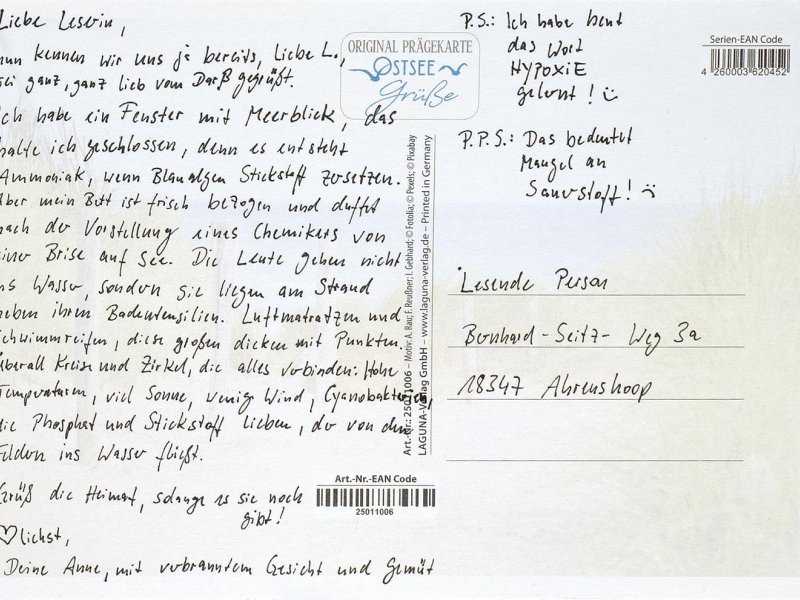 Liebe Leserin,
nun kennen wir uns ja bereits, Liebe L.,
sei ganz, ganz lieb vom Darß gegrüßt.
Ich habe ein Fenster mit Meerblick, das
halte ich geschlossen, denn es entsteht
Ammoniak, wenn Blaualgen Stickstoff zersetzen.
Aber mein Bett ist frisch bezogen und duftet
nach der Vorstellung eines Chemikers von
einer Brise auf See. Die Leute gehen nicht
ins Wasser, sondern sie liegen am Strand
neben ihren Badeutensilien. Luftmatratzen und
Schwimmreifen, diese großen dicken mit Punkten.
Überall Kreise und Zirkel, die alles verbinden: Hohe
Temperaturen, viel Sonne, wenig Wind, Cyanobakterien,
die Phosphat und Stickstoff lieben, der von den
Feldern ins Wasser fließt.
Grüß die Heimat, solange es sie noch
gibt!
♡lichst,
Deine Anne, mit verbranntem Gesicht und Gemüt
ORIGINAL PRÄGEKARTE
OSTSEE
Grüße
P.S.: Ich habe heut
das Wort
HYPOXIE
gelernt! :)
P.P.S.: Das bedeutet
Mangel an
Sauerstoff! :(
Serien-EAN Code
4 260003 620452
Lesende Person
Bernhard-Seitz-Weg 3a
18347 Ahrenshoop
Art.-Nr.: 25011006 – Motiv: A. Rau; F. Reußner; I. Gebhard; © Fotolia; © Pexels; © Pixabay
LAGUNA-Verlag GmbH – www.laguna-verlag.de – Printed in Germany
Art.-Nr.-EAN Code
25011006